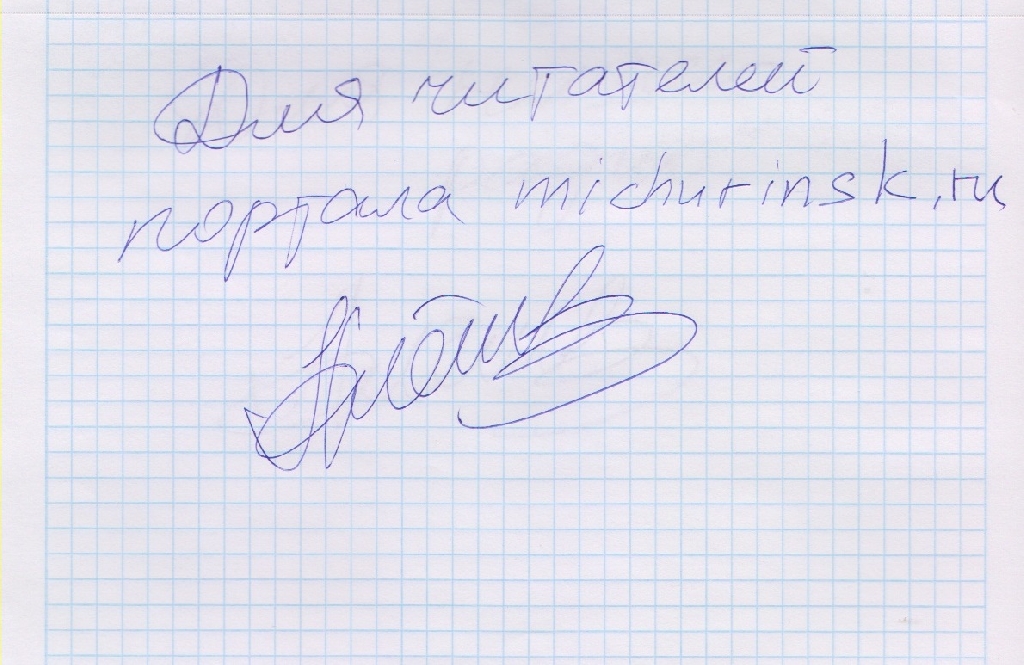 Для читателей
портала michurinsk.ru